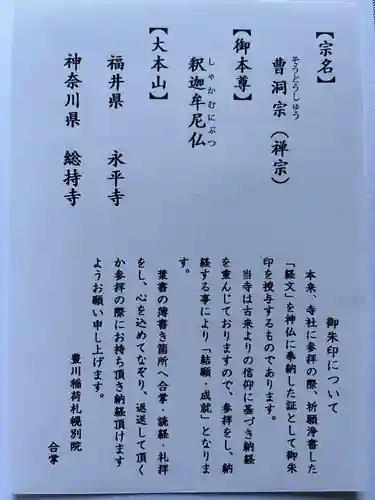 【宗名】
そうとうしゅう
曹洞宗（禅宗）
【御本尊】
しゃかむにぶつ
釈迦牟尼仏
【大本山】
福井県　永平寺
神奈川県　総持寺
御朱印について
本来、寺社に参拝の際、祈願浄書した
「経文」を神仏に奉納した証として御朱
印を授与するものであります。
当寺は古来よりの信仰に基づき納経
を重んじておりますので、参拝をし、納
経する事により「結願・成就」となりま
す。
葉書の薄書き箇所へ合掌・読経・礼拝
をし、心を込めてなぞり、返送して頂く
か参拝の際にお持ち頂き納経頂けます
ようお願い申し上げます。
豊川稲荷札幌別院
合掌